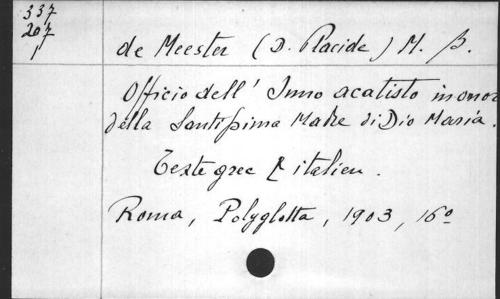 337
207
de Meester (D. Placide) M. B.
Officio dell' Inno acatisto in onor
della Santissima Madre di Dio Maria.
Texte grec & italien.
Roma, Polyglotta, 1903, 16o